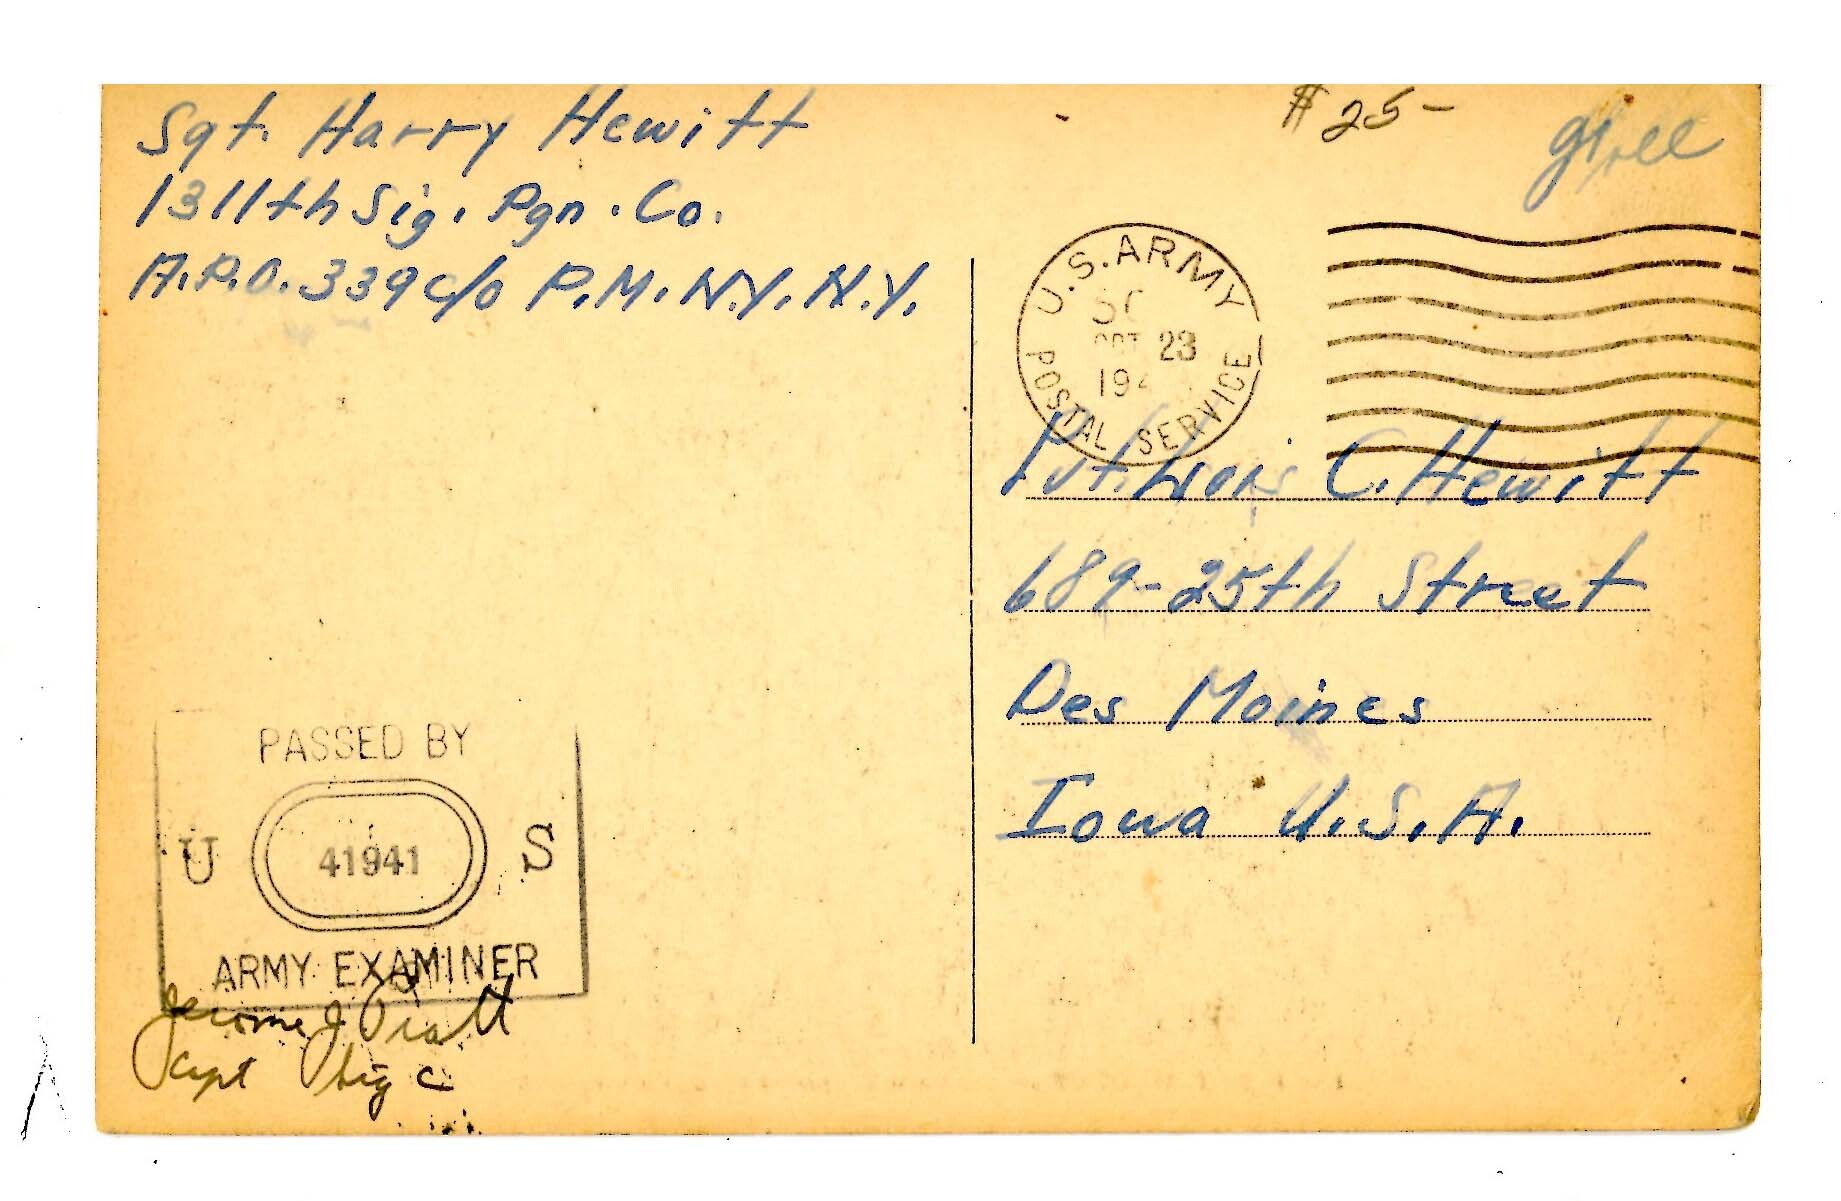 Sgt. Harry Hewitt
1311th Sig. Pgn. Co.
A.P.O. 339 c/o P.M. N.Y. N.Y.
$25-
U.S. ARMY
OCT 23
194
POSTAL SERVICE
Pvt. Lois C. Hewitt
689-25th Street
Des Moines
Iowa U.S.A.
PASSED BY
U 41941 S
ARMY EXAMINER
Jerome J. Pratt
Capt Sig C